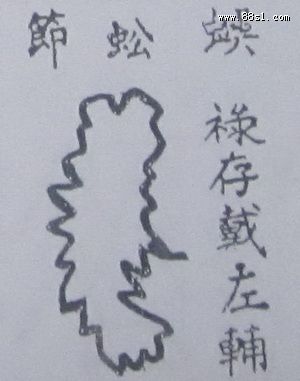 蜈蚣節
祿存戴左輔
www.88s1.com